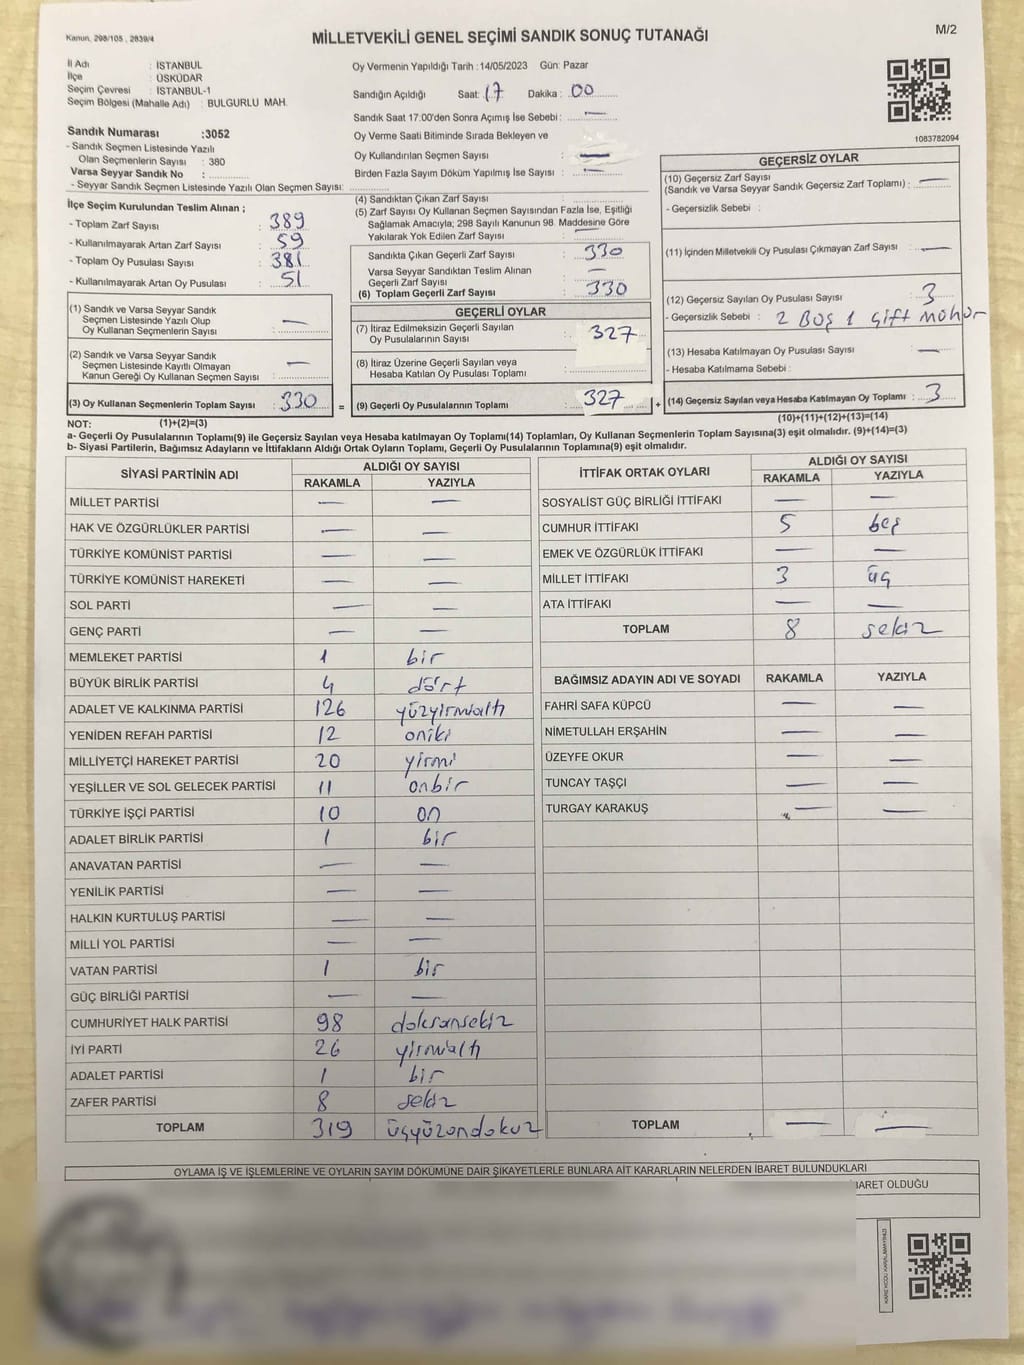 Kanun, 298/105 , 2839/4
MİLLETVEKİLİ GENEL SEÇİMİ SANDIK SONUÇ TUTANAĞI
M/2
İl Adı : İSTANBUL
İlçe : ÜSKÜDAR
Seçim Çevresi : İSTANBUL-1
Seçim Bölgesi (Mahalle Adı) : BULGURLU MAH.
Sandık Numarası :3052
- Sandık Seçmen Listesinde Yazılı
Olan Seçmenlerin Sayısı : 380
Varsa Seyyar Sandık No :
- Seyyar Sandık Seçmen Listesinde Yazılı Olan Seçmen Sayısı:
Oy Vermenin Yapıldığı Tarih :14/05/2023 Gün: Pazar
Sandığın Açıldığı Saat: 17 Dakika : 00
Sandık Saat 17:00'den Sonra Açımış İse Sebebi : —
Oy Verme Saati Bitiminde Sırada Bekleyen ve
Oy Kullandırılan Seçmen Sayısı : —
Birden Fazla Sayım Döküm Yapılmış İse Sayısı : —
1083782094
İlçe Seçim Kurulundan Teslim Alınan ;
- Toplam Zarf Sayısı : 389
- Kullanılmayarak Artan Zarf Sayısı : 59
- Toplam Oy Pusulası Sayısı : 381
- Kullanılmayarak Artan Oy Pusulası : 51
(1) Sandık ve Varsa Seyyar Sandık
Seçmen Listesinde Yazılı Olup
Oy Kullanan Seçmenlerin Sayısı : —
(2) Sandık ve Varsa Seyyar Sandık
Seçmen Listesinde Kayıtlı Olmayan
Kanun Gereği Oy Kullanan Seçmen Sayısı : —
(3) Oy Kullanan Seçmenlerin Toplam Sayısı : 330 =
(4) Sandıktan Çıkan Zarf Sayısı :
(5) Zarf Sayısı Oy Kullanan Seçmen Sayısından Fazla İse, Eşitliği
Sağlamak Amacıyla; 298 Sayılı Kanunun 98. Maddesine Göre
Yakılarak Yok Edilen Zarf Sayısı : —
Sandıkta Çıkan Geçerli Zarf Sayısı : 330
Varsa Seyyar Sandıktan Teslim Alınan
Geçerli Zarf Sayısı : —
(6) Toplam Geçerli Zarf Sayısı : 330
GEÇERLİ OYLAR
(7) İtiraz Edilmeksizin Geçerli Sayılan
Oy Pusulalarının Sayısı : 327
(8) İtiraz Üzerine Geçerli Sayılan veya
Hesaba Katılan Oy Pusulası Toplamı :
(9) Geçerli Oy Pusulalarının Toplamı : 327 +
GEÇERSİZ OYLAR
(10) Geçersiz Zarf Sayısı
(Sandık ve Varsa Seyyar Sandık Geçersiz Zarf Toplamı) : —
- Geçersizlik Sebebi :
(11) İçinden Milletvekili Oy Pusulası Çıkmayan Zarf Sayısı : —
(12) Geçersiz Sayılan Oy Pusulası Sayısı : 3
- Geçersizlik Sebebi : 2 Boş 1 çift mühür
(13) Hesaba Katılmayan Oy Pusulası Sayısı : —
- Hesaba Katılmama Sebebi :
(14) Geçersiz Sayılan veya Hesaba Katılmayan Oy Toplamı : 3
NOT: (1)+(2)=(3)
(10)+(11)+(12)+(13)=(14)
a- Geçerli Oy Pusulalarının Toplamı(9) ile Geçersiz Sayılan veya Hesaba katılmayan Oy Toplamı(14) Toplamları, Oy Kullanan Seçmenlerin Toplam Sayısına(3) eşit olmalıdır. (9)+(14)=(3)
b- Siyasi Partilerin, Bağımsız Adayların ve İttifakların Aldığı Ortak Oyların Toplamı, Geçerli Oy Pusulalarının Toplamına(9) eşit olmalıdır.
SİYASİ PARTİNİN ADI ALDIĞI OY SAYISI
RAKAMLA YAZIYLA
MİLLET PARTİSİ — —
HAK VE ÖZGÜRLÜKLER PARTİSİ — —
TÜRKİYE KOMÜNİST PARTİSİ — —
TÜRKİYE KOMÜNİST HAREKETİ — —
SOL PARTİ — —
GENÇ PARTİ — —
MEMLEKET PARTİSİ 1 bir
BÜYÜK BİRLİK PARTİSİ 4 dört
ADALET VE KALKINMA PARTİSİ 126 yüzyirmialtı
YENİDEN REFAH PARTİSİ 12 oniki
MİLLİYETÇİ HAREKET PARTİSİ 20 yirmi
YEŞİLLER VE SOL GELECEK PARTİSİ 11 onbir
TÜRKİYE İŞÇİ PARTİSİ 10 on
ADALET BİRLİK PARTİSİ 1 bir
ANAVATAN PARTİSİ — —
YENİLİK PARTİSİ — —
HALKIN KURTULUŞ PARTİSİ — —
MİLLİ YOL PARTİSİ — —
VATAN PARTİSİ 1 bir
GÜÇ BİRLİĞİ PARTİSİ — —
CUMHURİYET HALK PARTİSİ 98 doksansekiz
İYİ PARTİ 26 yirmialtı
ADALET PARTİSİ 1 bir
ZAFER PARTİSİ 8 sekiz
TOPLAM 319 üçyüzondokuz
İTTİFAK ORTAK OYLARI ALDIĞI OY SAYISI
RAKAMLA YAZIYLA
SOSYALİST GÜÇ BİRLİĞİ İTTİFAKI — —
CUMHUR İTTİFAKI 5 beş
EMEK VE ÖZGÜRLÜK İTTİFAKI — —
MİLLET İTTİFAKI 3 üç
ATA İTTİFAKI — —
TOPLAM 8 sekiz
BAĞIMSIZ ADAYIN ADI VE SOYADI RAKAMLA YAZIYLA
FAHRİ SAFA KÜPCÜ — —
NİMETULLAH ERŞAHİN — —
ÜZEYFE OKUR — —
TUNCAY TAŞÇI — —
TURGAY KARAKUŞ — —
TOPLAM — —
OYLAMA İŞ VE İŞLEMLERİNE VE OYLARIN SAYIM DÖKÜMÜNE DAİR ŞİKAYETLERLE BUNLARA AİT KARARLARIN NELERDEN İBARET BULUNDUKLARI
BARET OLDUĞU
KARE KODU KARALAMAYINIZ!